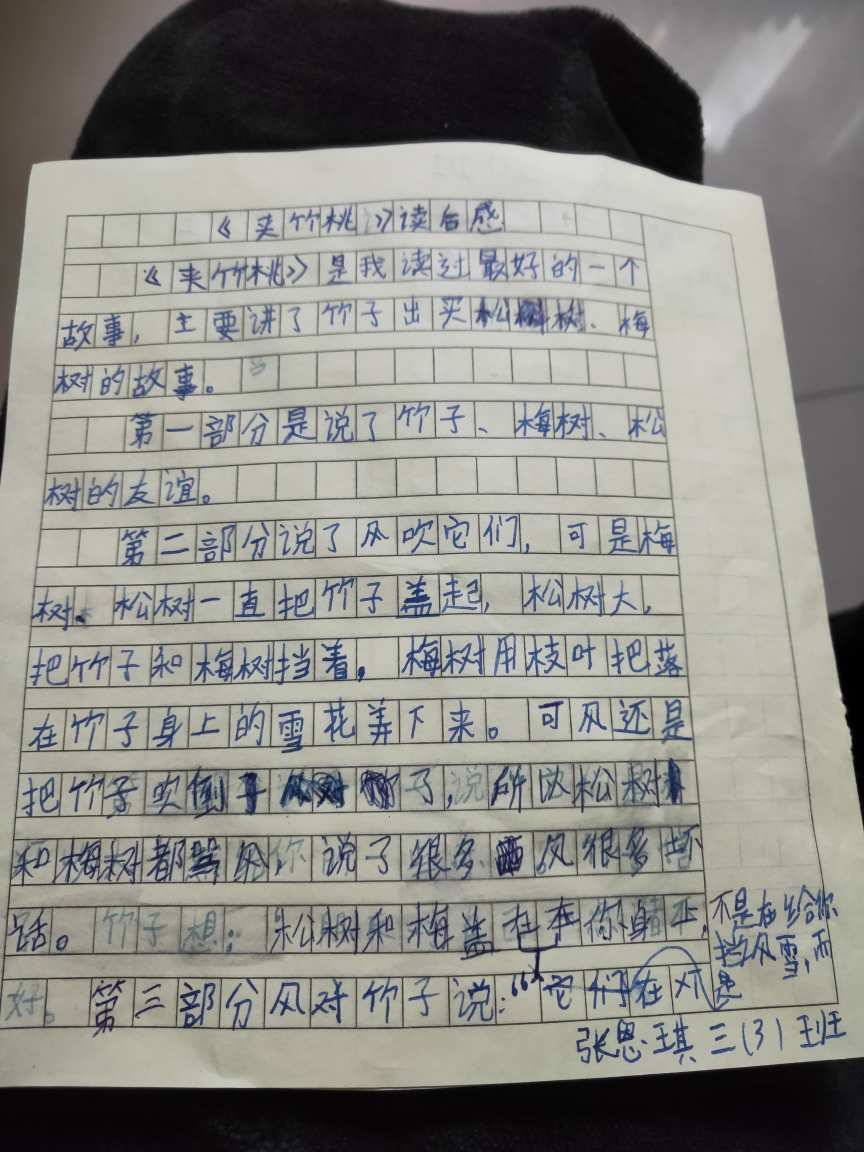 《夹竹桃》读后感
《夹竹桃》是我读过最好的一个
故事，主要讲了竹子出买松树、梅
树的故事。
第一部分是说了竹子、梅树、松
树的友谊。
第二部分说了风吹它们，可是梅
树、松树一直把竹子盖起，松树大，
把竹子和梅树挡着，梅树用枝叶把落
在竹子身上的雪花弄下来。可风还是
把竹子吹倒了，说所以松树
和梅树都骂风，说了很多风很多坏
话。竹子想：松树和梅盖在你身上，
不是在给你
挡风雪，而
是
好。第三部分风对竹子说：“它们在对
张思琪三(3)班